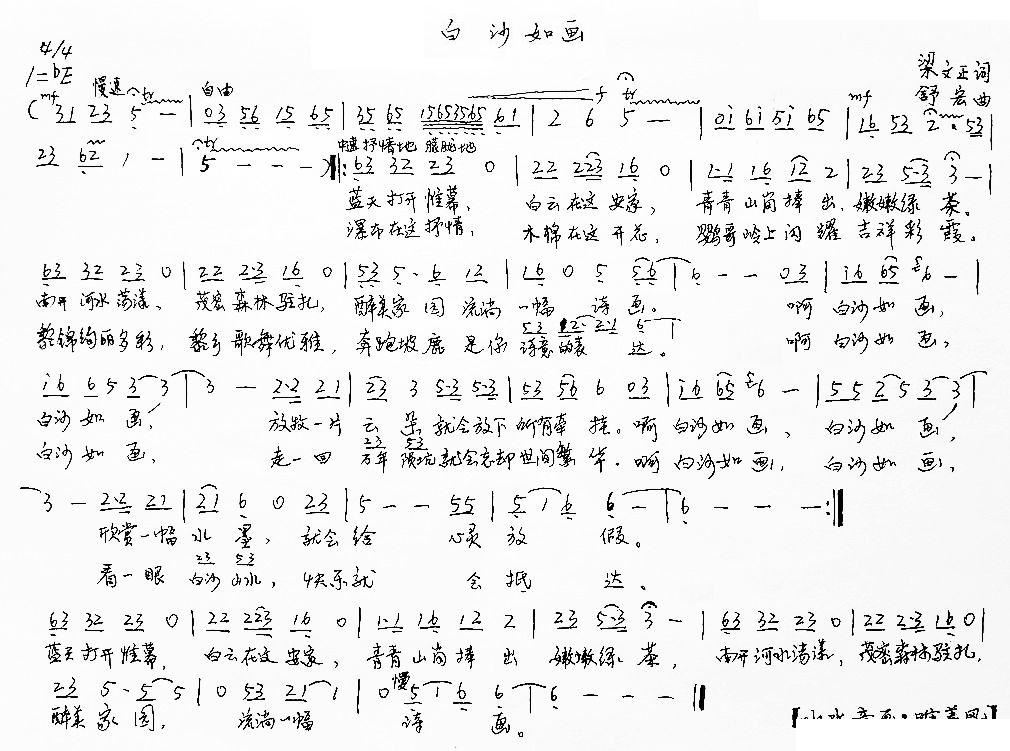 白沙如画
4/4
1=bE
梁文正词
舒宏曲
慢速 自由
mf f mf
(31 23 5 — | 03 56 15 65 | 35 65 15653565 61 | 2 6 5 — | 0i 6i 5i 65 | 16 53 2 · 53
23 62 1 — | 5 — — —) |: 63 32 23 0 | 22 223 16 0 | 1·1 16 12 2 | 23 5·3 3 — |
抒情地 朦胧地
蓝天打开帷幕, 白云在这安家, 青青山岗捧出 嫩嫩绿茶。
瀑布在这抒情, 木棉在这开花, 鹦哥岭上闪耀吉祥彩霞。
63 32 23 0 | 22 2·3 16 0 | 53 5·6 12 | 16 0 5 56 | 6 — — 03 | i6 65 6 — |
南开河水荡漾, 茂密森林驻扎, 醉美家园流淌一幅诗画。 啊白沙如画,
53 12· 2·1 6
黎锦绚丽多彩, 黎乡歌舞优雅, 奔跑坡鹿是你诗意的表达。 啊白沙如画,
i6 6 5 3 3 | 3 — 2·2 21 | 23 3 5·3 5·3 | 53 56 6 03 | i6 65 6 — | 5 5 2 5 3 3 |
白沙如画, 放牧一片云朵就会放下所有牵挂。啊白沙如画, 白沙如画,
23 53
白沙如画, 走一回万年 就会忘却世间繁华。啊白沙如画, 白沙如画,
3 — 2·2 21 | 21 6 0 23 | 5 — — 55 | 5 1 6 6 | 6 — — — :|
欣赏一幅水墨, 就会给心灵放假。
23 53
看一眼白沙山水, 快乐就会抵达。
63 32 23 0 | 22 223 16 0 | 1·1 16 12 2 | 23 5·3 3 — | 63 32 23 0 | 22 2·3 16 0 |
蓝天打开帷幕, 白云在这安家, 青青山岗捧出 嫩嫩绿茶, 南开河水荡漾, 茂密森林驻扎,
慢
2·3 5·5 5 | 0 53 21 1 | 0 5 1 6 6 | 6 — — — ||
醉美家园, 流淌一幅诗画。